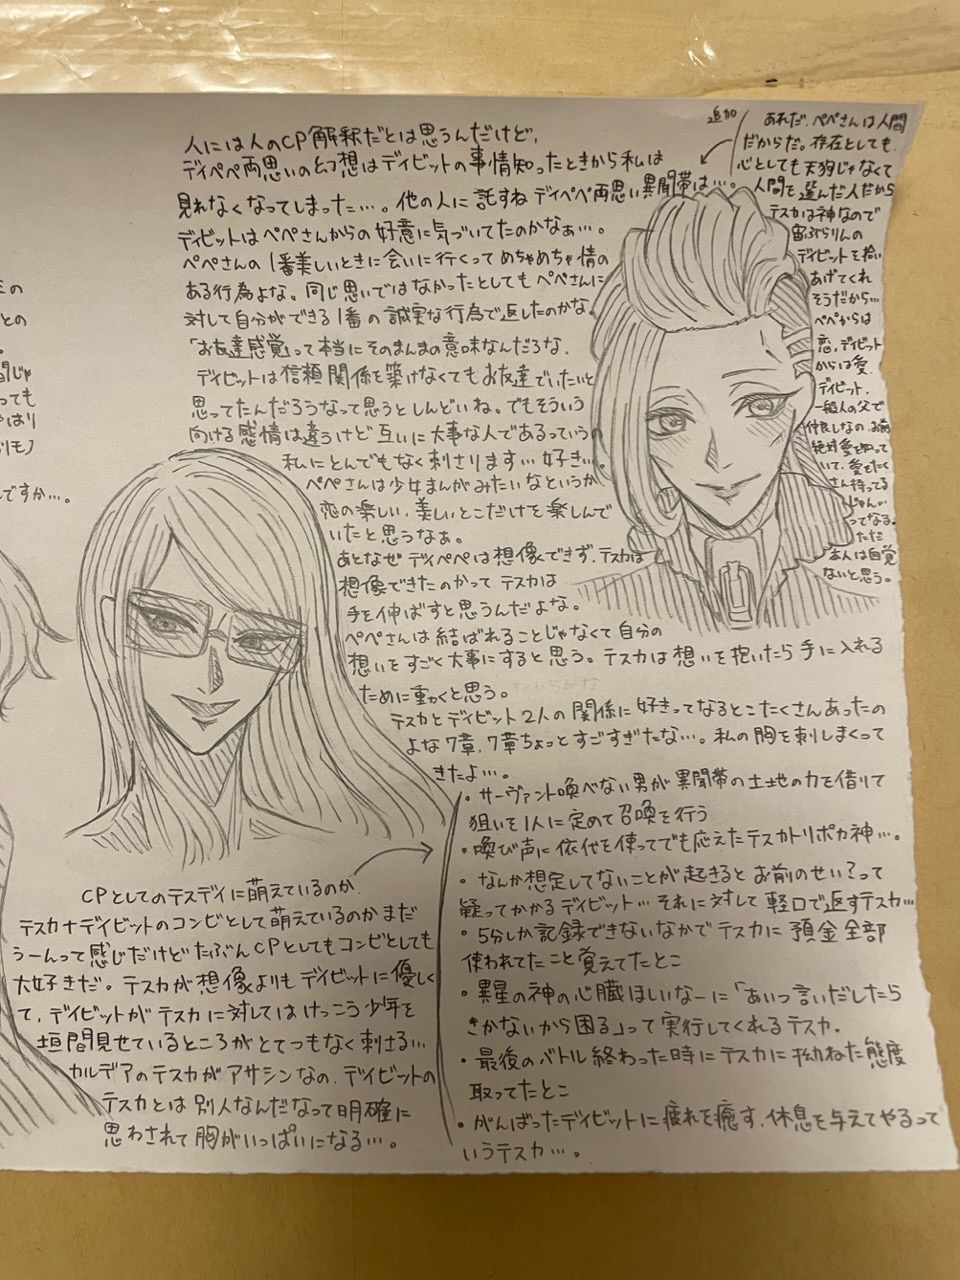 人には人のCP解釈だとは思うんだけど、
デイペペ両思いの幻想はデイビットの事情知ったときから私は
見れなくなってしまった…。他の人に託すね デイペペ両思い異聞帯は…。
デイビットはペペさんからの好意に気づいてたのかなぁ…。
ペペさんの1番美しいときに会いに行くってめちゃめちゃ情の
ある行為よな。同じ思いではなかったとしてもペペさんに
対して自分ができる1番の誠実な行為で返したのかな。
「お友達感覚」って本当にそのまんまの意味なんだろな、
デイビットは信頼関係を築けなくてもお友達でいたいと
思ってたんだろうなって思うとしんどいね。でもそういう
向ける感情は違うけど互いに大事な人であるっていうの
私にとんでもなく刺さります…好き…。
ペペさんは少女まんがみたいなというか、
恋の楽しい、美しいとこだけを楽しんで
いたと思うなぁ。
あとなぜデイペペは想像できず、テスカは
想像できたのかって テスカは
手を伸ばすと思うんだよな。
ペペさんは結ばれることじゃなくて自分の
想いをすごく大事にすると思う。テスカは想いを抱いたら手に入れる
ために動くと思う。
テスカとデイビット2人の関係に好きってなるとこたくさんあったの
よな7章、7章ちょっとすごすぎたな…。私の胸を刺しまくって
きたよ…。
・サーヴァント喚べない男が異聞帯の土地の力を借りて
狙いを1人に定めて召喚を行う
・喚び声に依代を使ってでも応えたテスカトリポカ神…。
・なんか想定してないことが起きるとお前のせい?って
疑ってかかるデイビット…それに対して軽口で返すテスカ…
・5分しか記録できないなかでテスカに預金全部
使われてたこと覚えてたとこ
・異星の神の心臓ほしいなーに「あいつ言いだしたら
きかないから困る」って実行してくれるテスカ.
・最後のバトル終わった時にテスカに拗ねた態度
取ってたとこ
・がんばったデイビットに疲れを癒す、休息を与えてやるって
いうテスカ…。
CPとしてのテスデイに萌えているのか、
テスカ+デイビットのコンビとして萌えているのかまだ
うーんって感じだけどたぶんCPとしてもコンビとしても
大好きだ。テスカが想像よりもデイビットに優しく
て、デイビットがテスカに対してはけっこう少年を
垣間見せているところがとてつもなく刺さる…
カルデアのテスカがアサシンなの、デイビットの
テスカとは別人なんだなって明確に
思わされて胸がいっぱいになる…。
追加
あれだ、ペペさんは人間
だからだ。存在としても、
心としても天狗じゃなくて
人間を選んだ人だから
テスカは神なので
宙ぶらりんの
デイビットを拾い
あげてくれ
そうだから…
ペペからは
恋、デイビット
からは愛、
デイビット、
一般人の父で
仲良しなの、お前
絶対愛を知って
いて、愛をたく
さん持ってる
じゃんか
ってなる。
ただ
本人は自覚
ないと思う。
との
。
じゃ
っても
はり
モノ
ですか…。